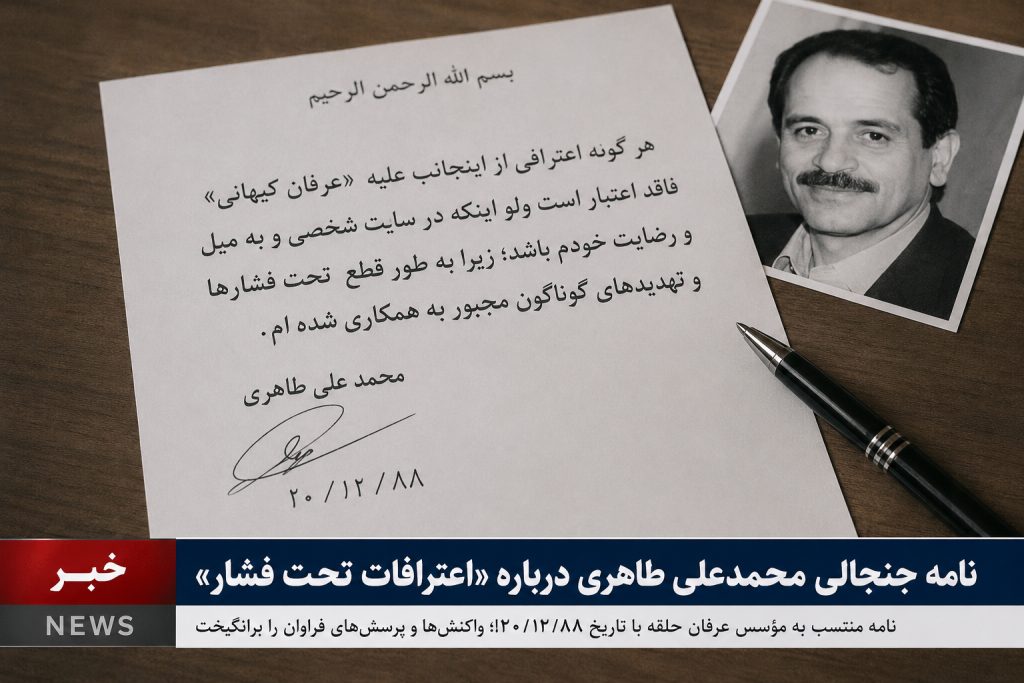 بسم الله الرحمن الرحیم
هر گونه اعترافی از اینجانب علیه «عرفان کیهانی»
فاقد اعتبار است ولو اینکه در سایت شخصی و به میل
و رضایت خودم باشد؛ زیرا به طور قطع تحت فشارها
و تهدیدهای گوناگون مجبور به همکاری شده ام .
محمد علی طاهری
۲۰ / ۱۲ / ۸۸
خبر
NEWS
نامه جنجالی محمدعلی طاهری درباره «اعترافات تحت فشار»
نامه منتسب به مؤسس عرفان حلقه با تاریخ ۲۰/۱۲/۸۸!؛ واکنش‌ها و پرسش‌های فراوان را برانگیخت